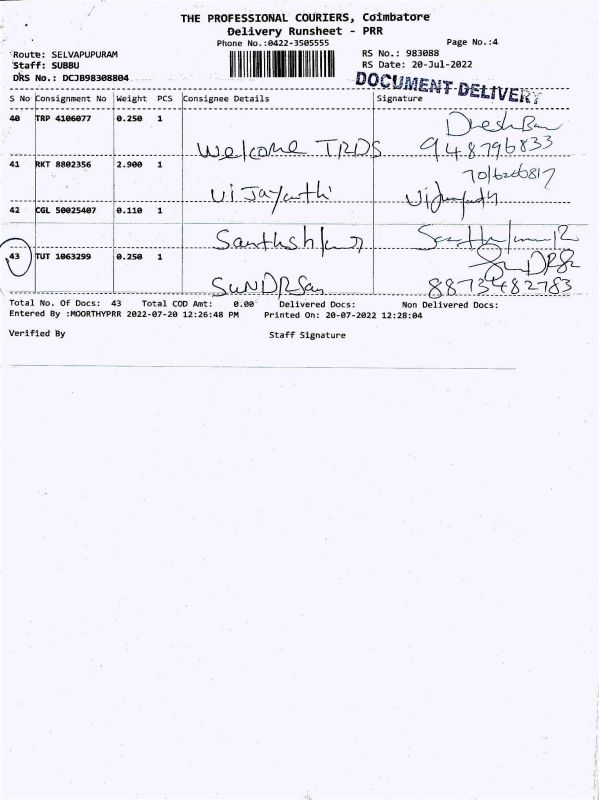 THE PROFESSIONAL COURIERS, Coimbatore
Delivery Runsheet - PRR
Phone No.:0422-3505555 Page No.:4
Route: SELVAPUPURAM RS No.: 983088
Staff: SUBBU RS Date: 20-Jul-2022
DRS No.: DCJB98308804
DOCUMENT DELIVERY
S No Consignment No Weight PCS Consignee Details Signature
40 TRP 4106077 0.250 1
Welcome TRDS 948796833
41 RKT 8802356 2.900 1
Vijayanthi
42 CGL 50025407 0.110 1
43 TUT 1063299 0.250 1
8873482783
Total No. Of Docs: 43 Total COD Amt: 0.00 Delivered Docs: Non Delivered Docs:
Entered By :MOORTHYPRR 2022-07-20 12:26:48 PM Printed On: 20-07-2022 12:28:04
Verified By Staff Signature